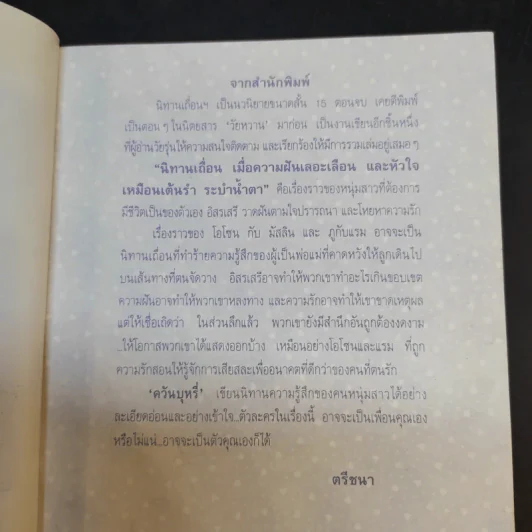 จากสำนักพิมพ์
นิทานเถื่อนฯ เป็นนวนิยายขนาดสั้น 15 ตอนจบ เคยตีพิมพ์
เป็นตอนๆ ในนิตยสาร 'วัยหวาน' มาก่อน เป็นงานเขียนอีกชิ้นหนึ่ง
ที่ผู้อ่านวัยรุ่นให้ความสนใจติดตาม และเรียกร้องให้มีการรวมเล่มอยู่เสมอๆ
"นิทานเถื่อน เมื่อความฝันเลอะเลือน และหัวใจ
เหมือนเต้นรำ ระบำน้ำตา" คือเรื่องราวของหนุ่มสาวที่ต้องการ
มีชีวิตเป็นของตัวเอง อิสรเสรี วาดฝันตามใจปรารถนา และโหยหาความรัก
เรื่องราวของ โอโซน กับ มัสลิน และ ภูกับแรม อาจจะเป็น
นิทานเถื่อนที่ทำร้ายความรู้สึกของผู้เป็นพ่อแม่ที่คาดหวังให้ลูกเดินไป
บนเส้นทางที่ตนจัดวาง อิสรเสรีอาจทำให้พวกเขาทำอะไรเกินขอบเขต
ความฝันอาจทำให้พวกเขาหลงทาง และความรักอาจทำให้เขาขาดเหตุผล
แต่ให้เชื่อเถิดว่า ในส่วนลึกแล้ว พวกเขายังมีสำนึกอันถูกต้องงดงาม
..ให้โอกาสพวกเขาได้แสดงออกบ้าง เหมือนอย่างโอโซนและแรม ที่ถูก
ความรักสอนให้รู้จักการเสียสละเพื่ออนาคตที่ดีกว่าของคนที่ตนรัก
'ควันบุหรี่' เขียนนิทานความรู้สึกของคนหนุ่มสาวได้อย่าง
ละเอียดอ่อนและอย่างเข้าใจ..ตัวละครในเรื่องนี้ อาจจะเป็นเพื่อนคุณเอง
หรือไม่แน่..อาจจะเป็นตัวคุณเองก็ได้
ตรีชนา